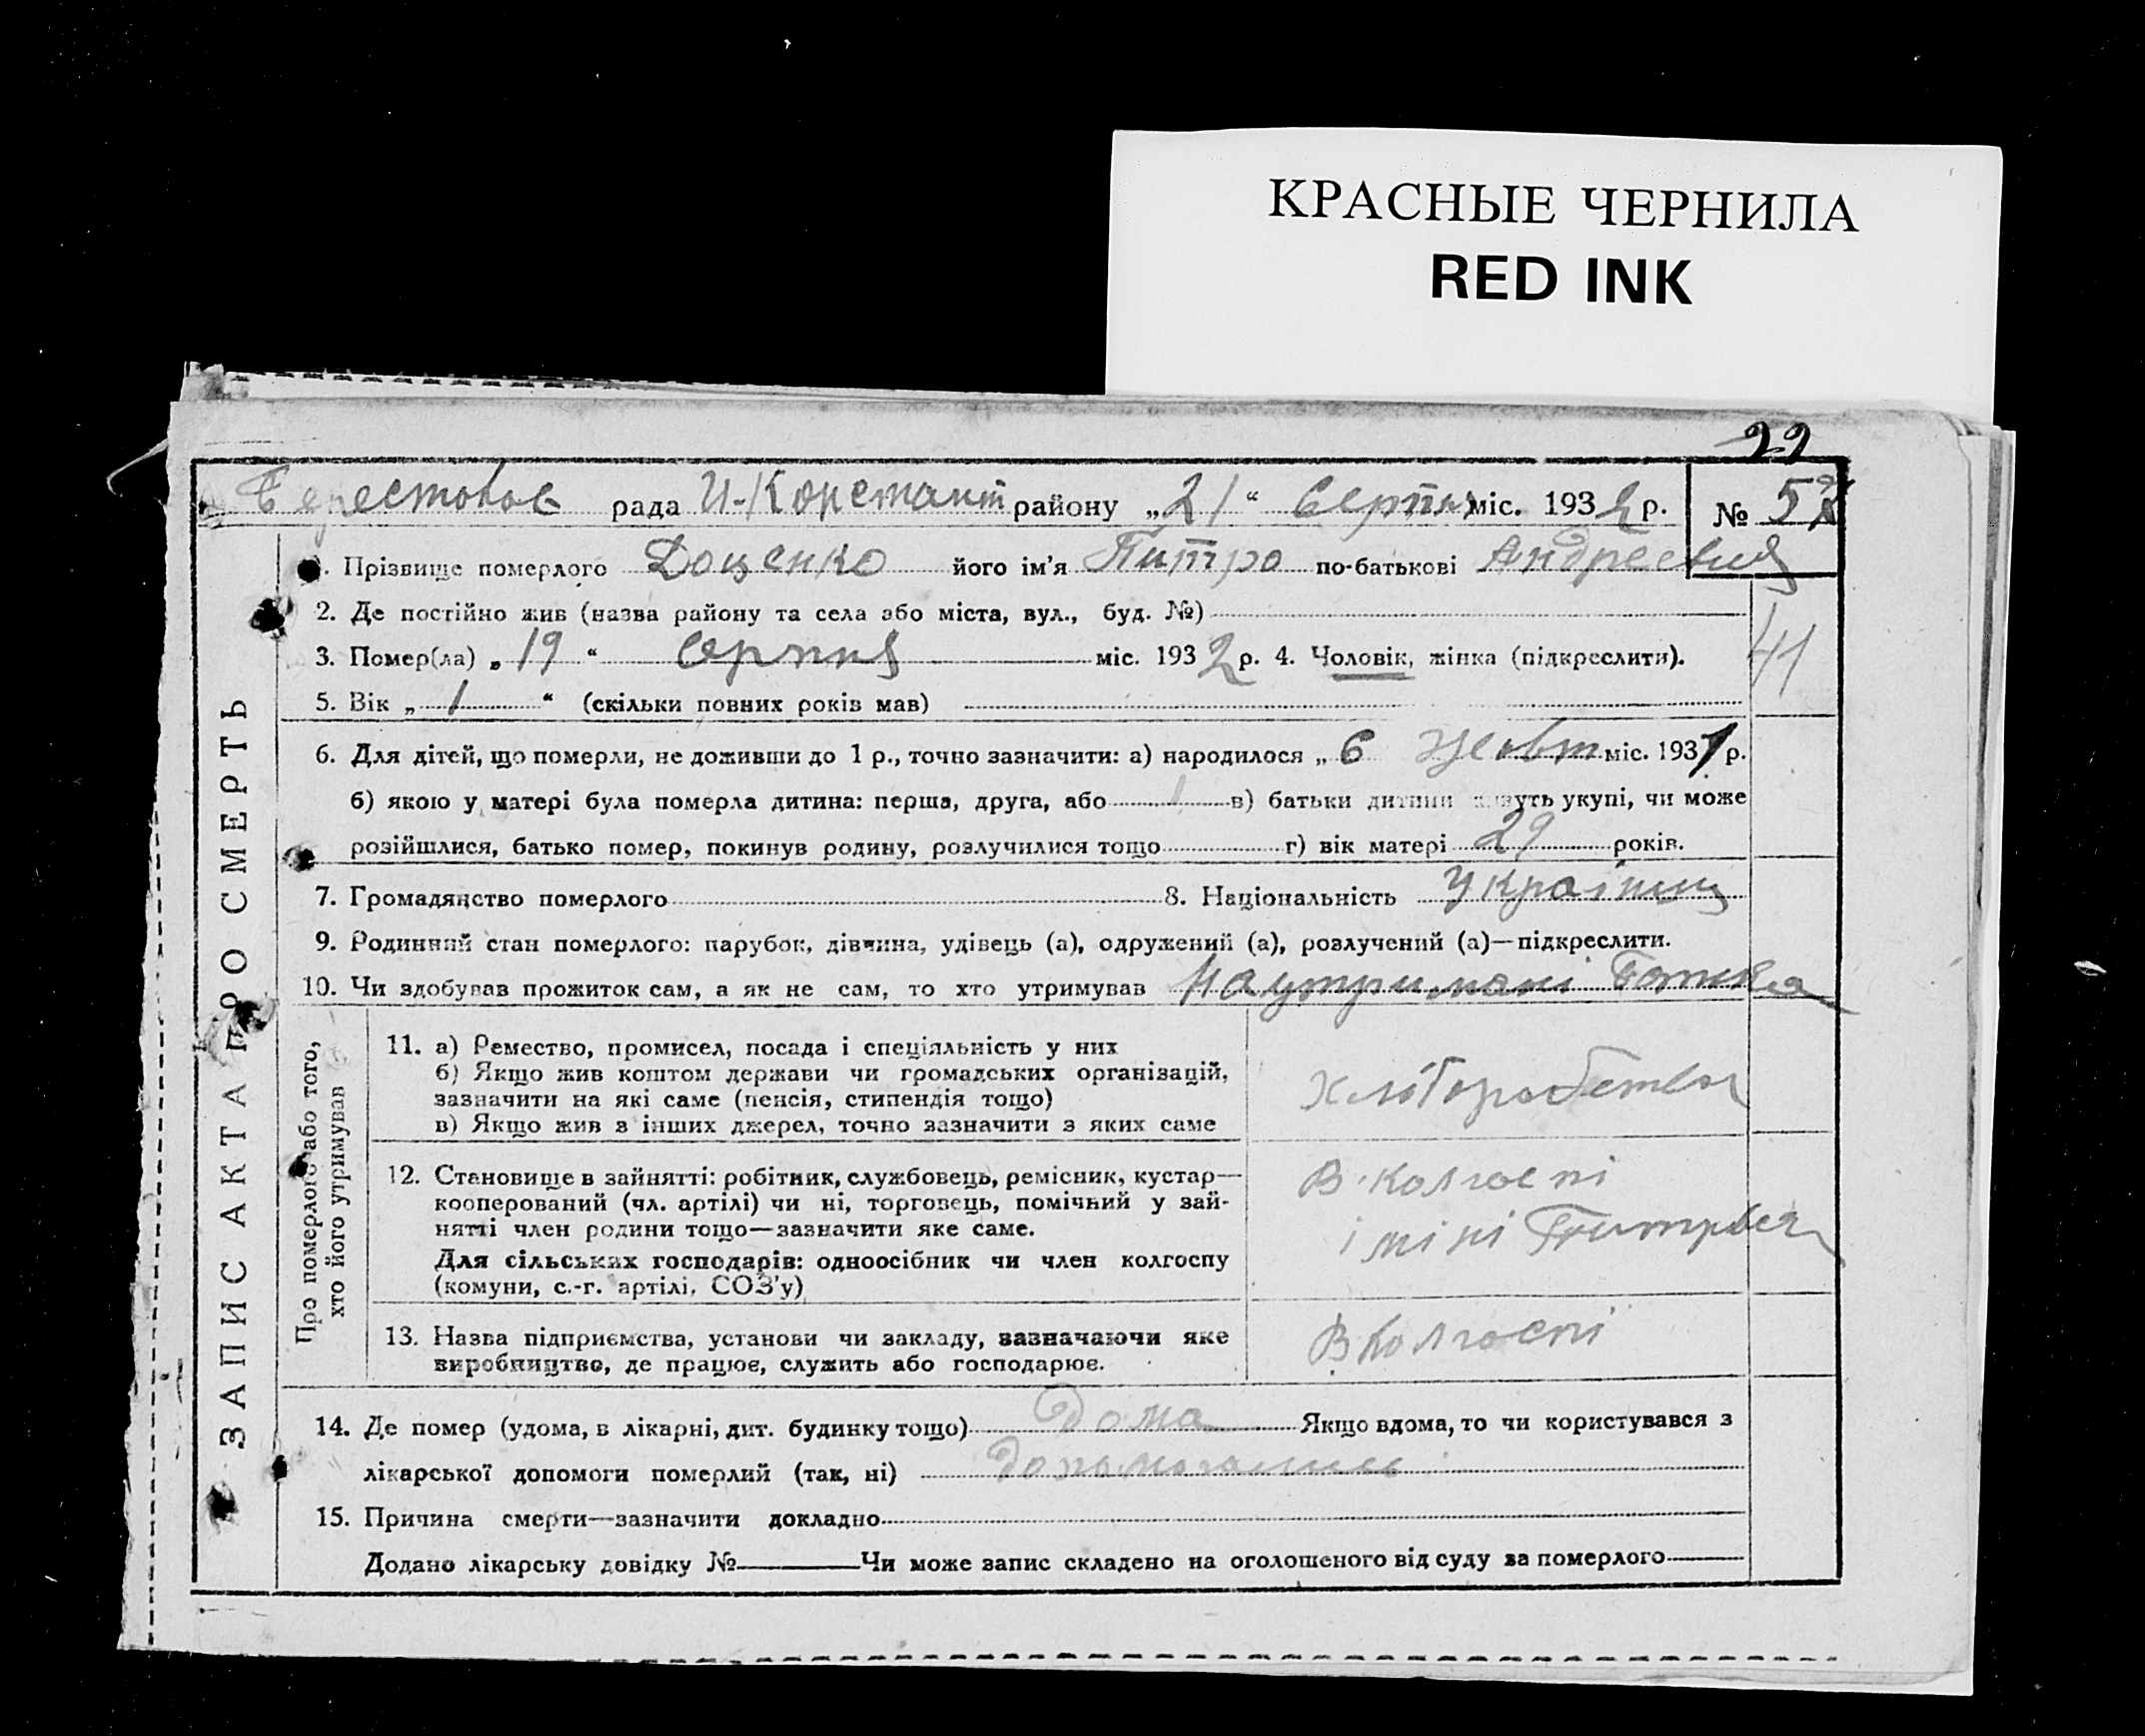 КРАСНЫЕ ЧЕРНИЛА
RED INK
22
Берестовое рада И-Констант району „21“ Серпня міс. 1932 р. № 57
1. Прізвище померлого Доценко його ім'я Питро по-батькові Андреевич
2. Де постійно жив (назва району та села або міста, вул., буд. №)
3. Помер(ла) „19“ серпня міс. 1932 р. 4. Чоловік, жінка (підкреслити).
41
5. Вік „1“ (скільки повних років мав)
6. Для дітей, що померли, не доживши до 1 р., точно зазначити: а) народилося „6 жовт міс. 1931 р.
б) якою у матері була померла дитина: перша, друга, або 1 в) батьки дитини живуть укупі, чи може
розійшлися, батько помер, покинув родину, розлучилися тощо г) вік матері 29 років.
7. Громадянство померлого 8. Національність Українец
9. Родинний стан померлого: парубок, дівчина, удівець (а), одружений (а), розлучений (а)—підкреслити.
10. Чи здобував прожиток сам, а як не сам, то хто утримував На утримані Батька
ЗАПИС АКТА ПРО СМЕРТЬ
Про померлого або того,
хто його утримував
11. а) Ремество, промисел, посада і спеціяльність у них
б) Якщо жив коштом держави чи громадських організацій,
зазначити на які саме (пенсія, стипендія тощо)
в) Якщо жив з інших джерел, точно зазначити з яких саме
12. Становище в зайнятті: робітник, службовець, ремісник, кустар—
кооперований (чл. артілі) чи ні, торговець, помічний у зай-
нятті член родини тощо—зазначити яке саме.
Для сільських господарів: одноосібник чи член колгоспу
(комуни, с.-г. артілі, СОЗ'у)
В колгоспі
імені
13. Назва підприємства, установи чи закладу, зазначаючи яке
виробництво, де працює, служить або господарює.
В колгоспі
14. Де помер (удома, в лікарні, дит. будинку тощо) Дома Якщо вдома, то чи користувався з
лікарської допомоги померлий (так, ні)
15. Причина смерти—зазначити докладно
Додано лікарську довідку № Чи може запис складено на оголошеного від суду за померлого